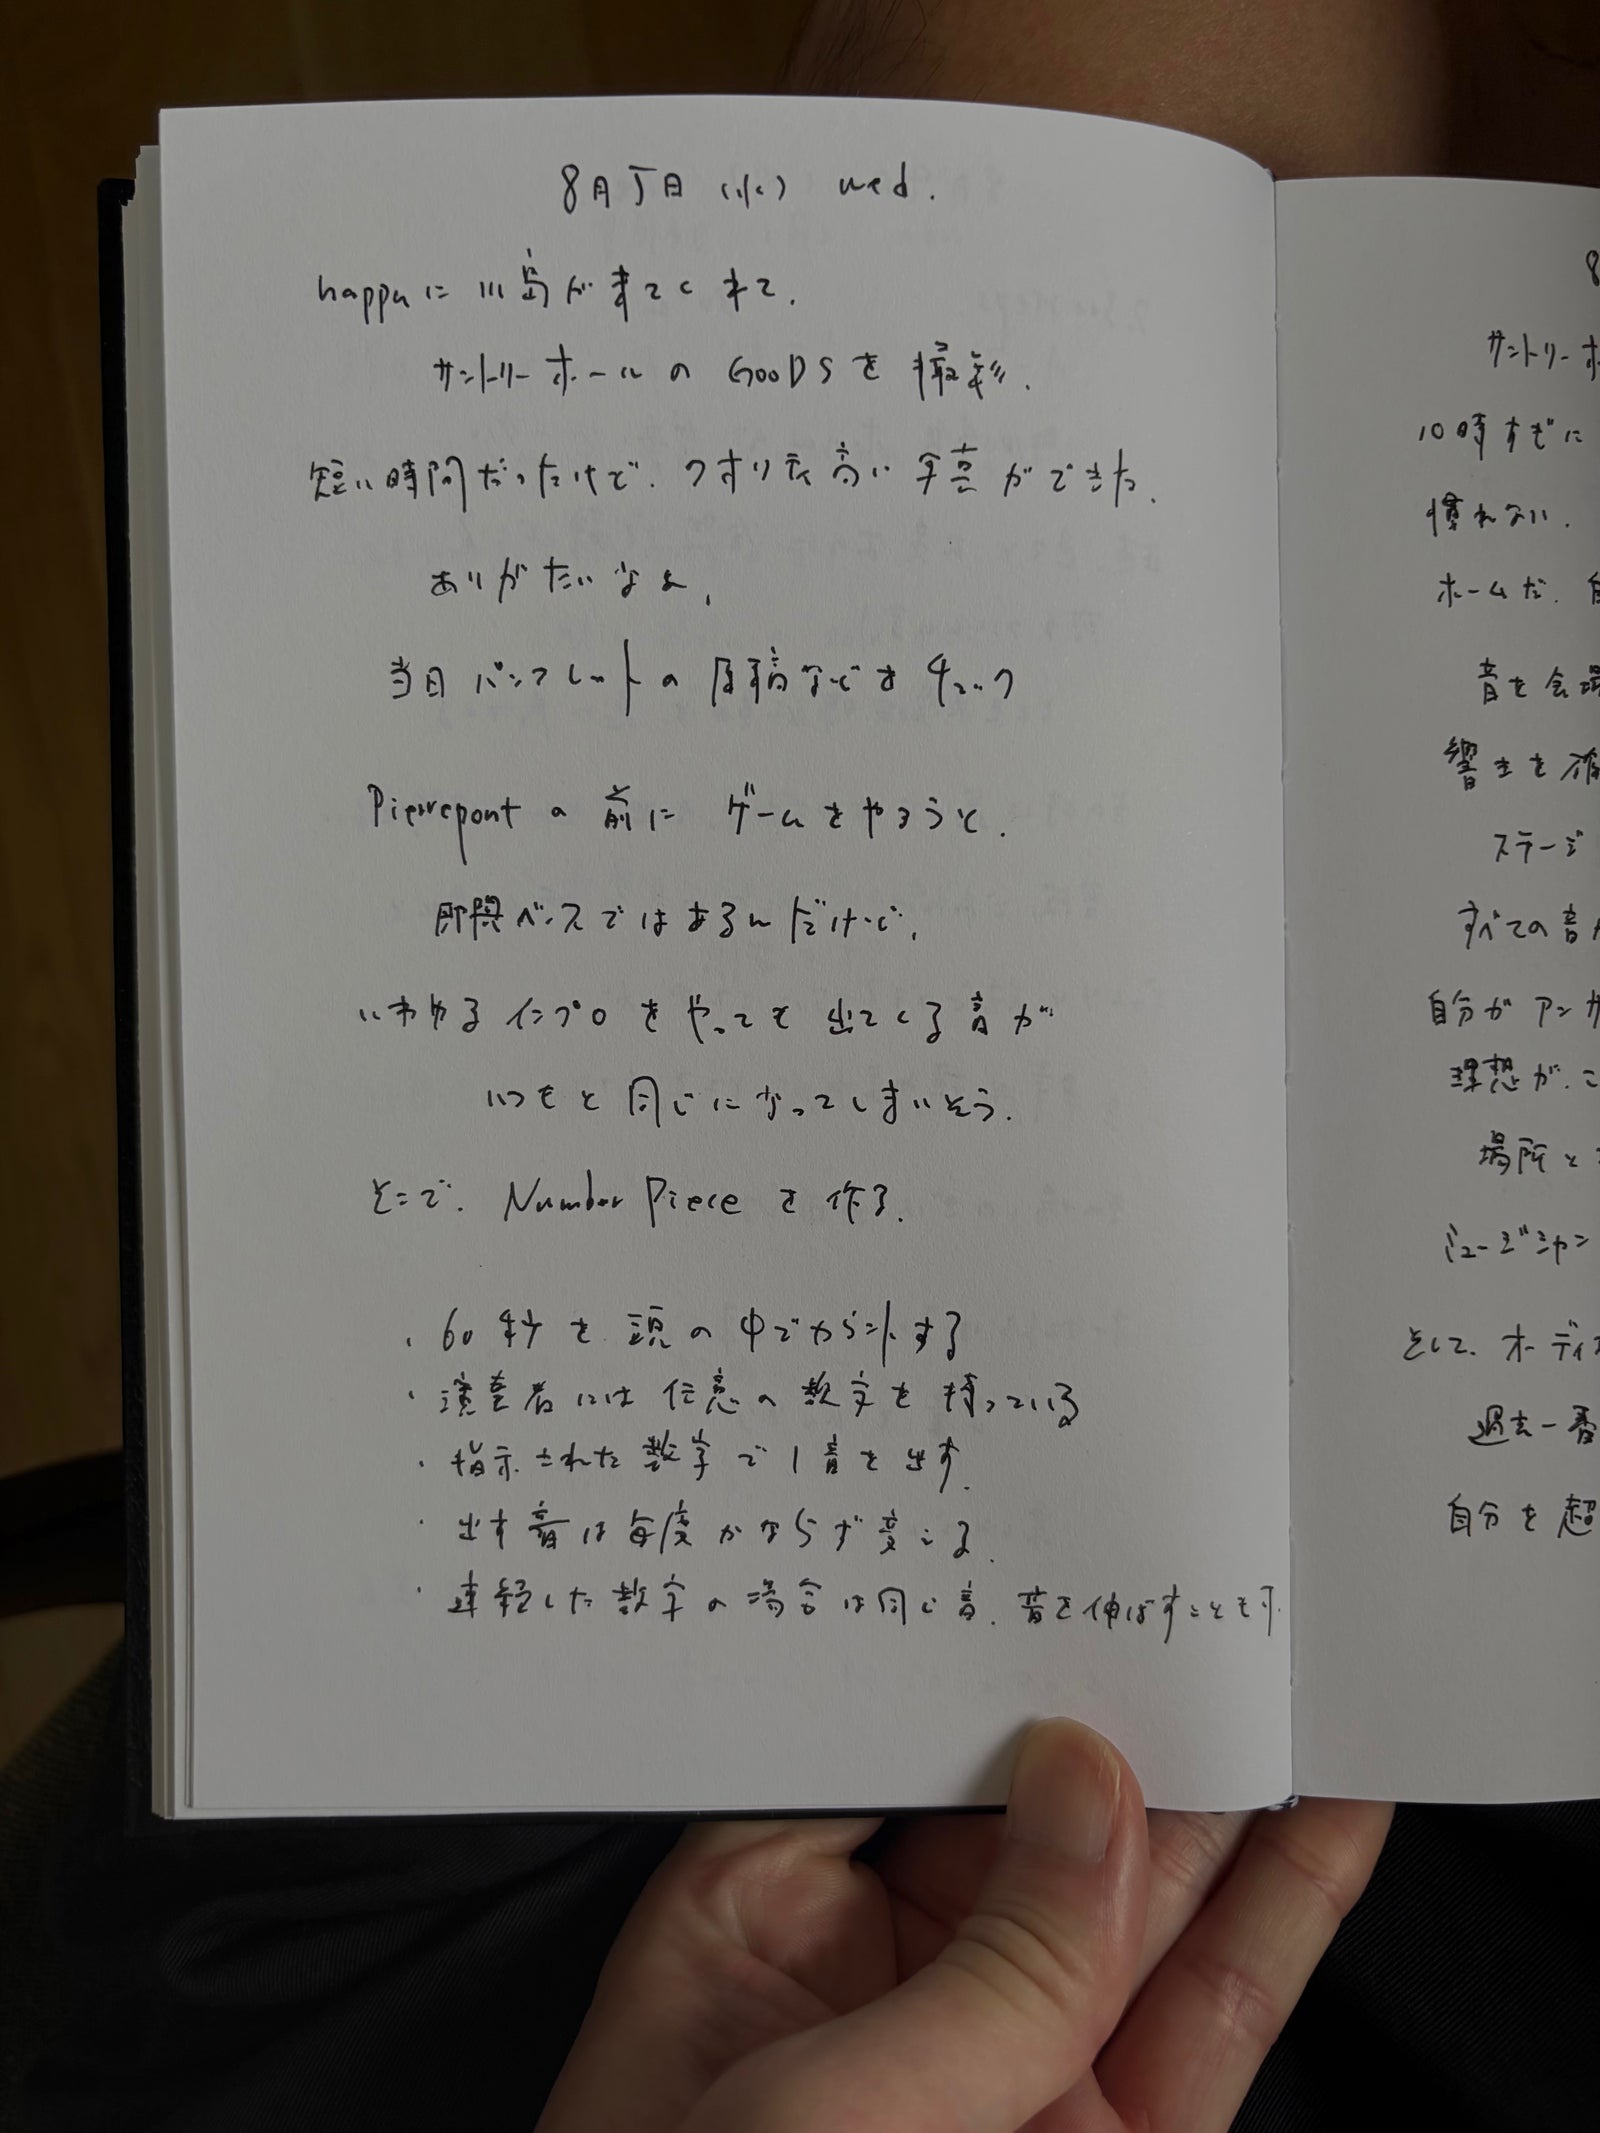 8月5日(水) wed.
happuに川島が来てくれて.
サントリーホールのGOODSを撮影.
短い時間だったけど.クオリティ高い写真ができた.
ありがたいなぁ.
当日パンフレットの原稿などをチェック
Pierrepontの前にゲームをやろうと.
即興ベースではあるんだけど,
いわゆるインプロをやっても出てくる音が
いつもと同じになってしまいそう.
そこで.Number Pieceを作る.
・60秒を頭の中でカウントする
・演奏者には任意の数字を持っている
・指示された数字で1音を出す.
・出す音は毎度かならず変える.
・連続した数字の場合は同じ音.音を伸ばすことも可.
8
サントリーホ
10時すぎに
慣れない.
ホームだ.自
音を会場
響きを確
ステージ
すべての音が
自分がアンサ
理想が.こ
場所と
ミュージシャン
そして.オーディ
過去一番
自分を超